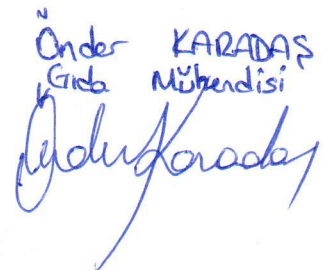 Önder KARADAŞ
Gıda Mühendisi
Önder Karadaş